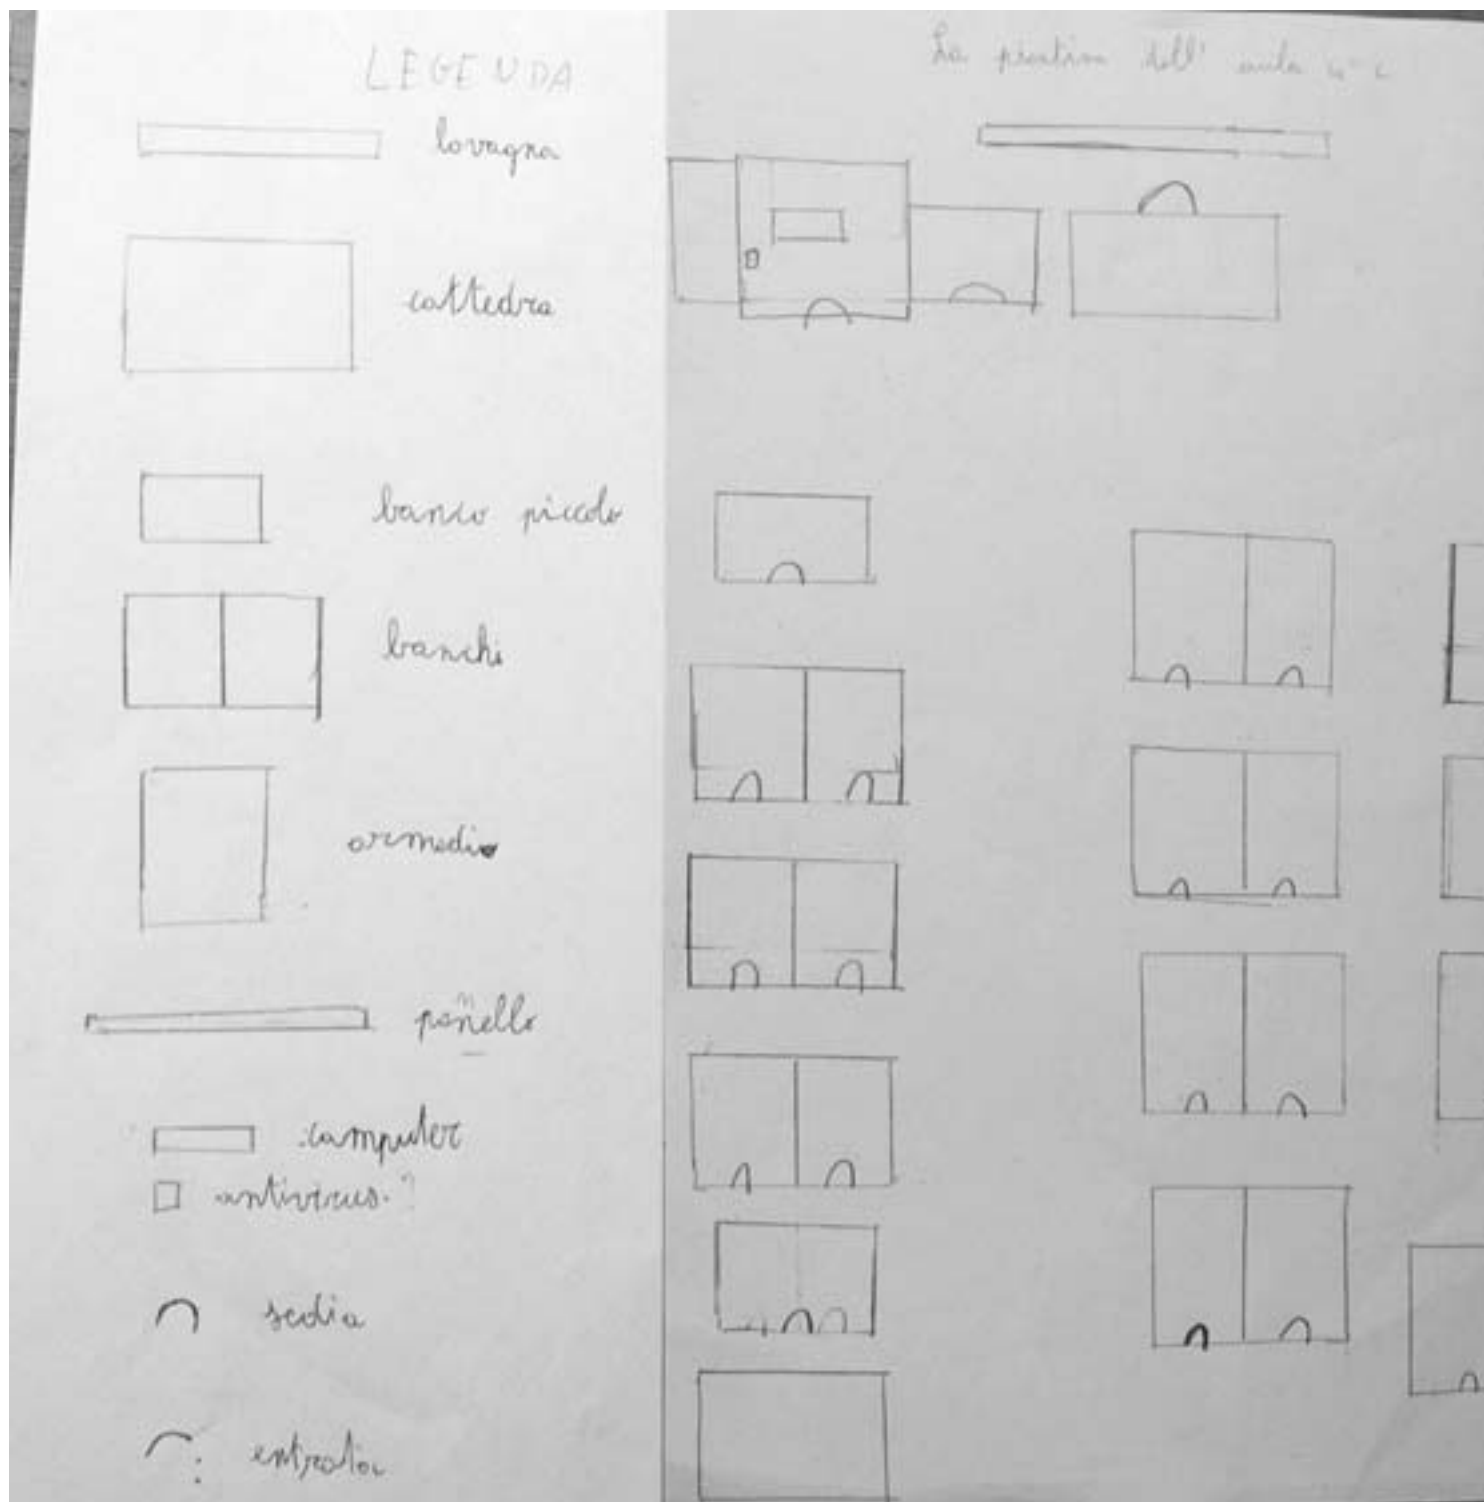 LEGENDA
lovagna
cattedra
banco piccolo
banchi
armadio
pannello
computer
antivirus.?
sedia
entrata
La piantina dell' aula